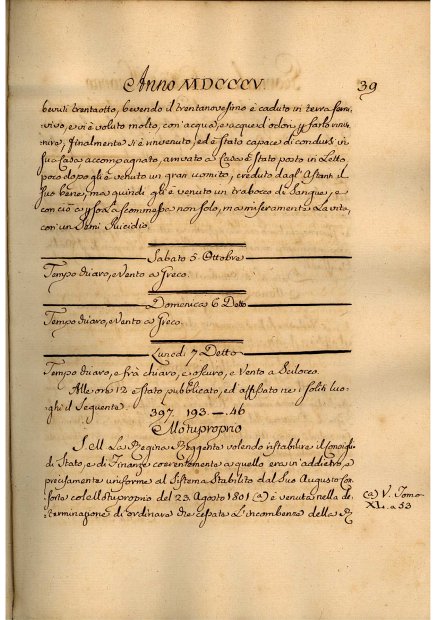 Anno MDCCCV.
39
bevuti trentaotto, bevendo il trentanovesimo è caduto in terra semi,
vivo, e vi è voluto molto, con acqua, e acque d'odori per farlo rinve,
nire, finalmente si è rinvenuto, ed è stato capace di condursi in
sua Casa accompagnato, arrivato a Casa è stato posto in Letto,
poco dopo gli è venuto un gran vomito, creduto dagl'Astanti il
suo bene, ma quindi gli è venuto un trabocco di Sangue, e
con ciò a perso la scommessa non solo, ma miseramente la vita,
con un Semi Suicidio.
Sabato 5. Ottobre
Tempo chiaro, e Vento a Greco.
Domenica 6 Detto
Tempo chiaro, e Vento a Greco.
Lunedì 7. Detto
Tempo chiaro, e frà chiaro, e oscuro, e Vento a Scilocco.
Alle ore 12 è stato pubblicato, ed affissato ne i soliti luo,
ghi il Seguente.
397 193 —. 46
Motuproprio
S. M. La Regina Reggente volendo ristabilire il Consiglio
di Stato, e di Finanze coerentemente a quello era in addietro, e
precisamente uniforme al Sistema Stabilito dal Suo Augusto Con,
sorte col Motuproprio del 23. Agosto 1801 (a) è venuta nella de,
terminazione di ordinare che cessata l'incombenza della R
(a) V. Tomo
XL. a 53